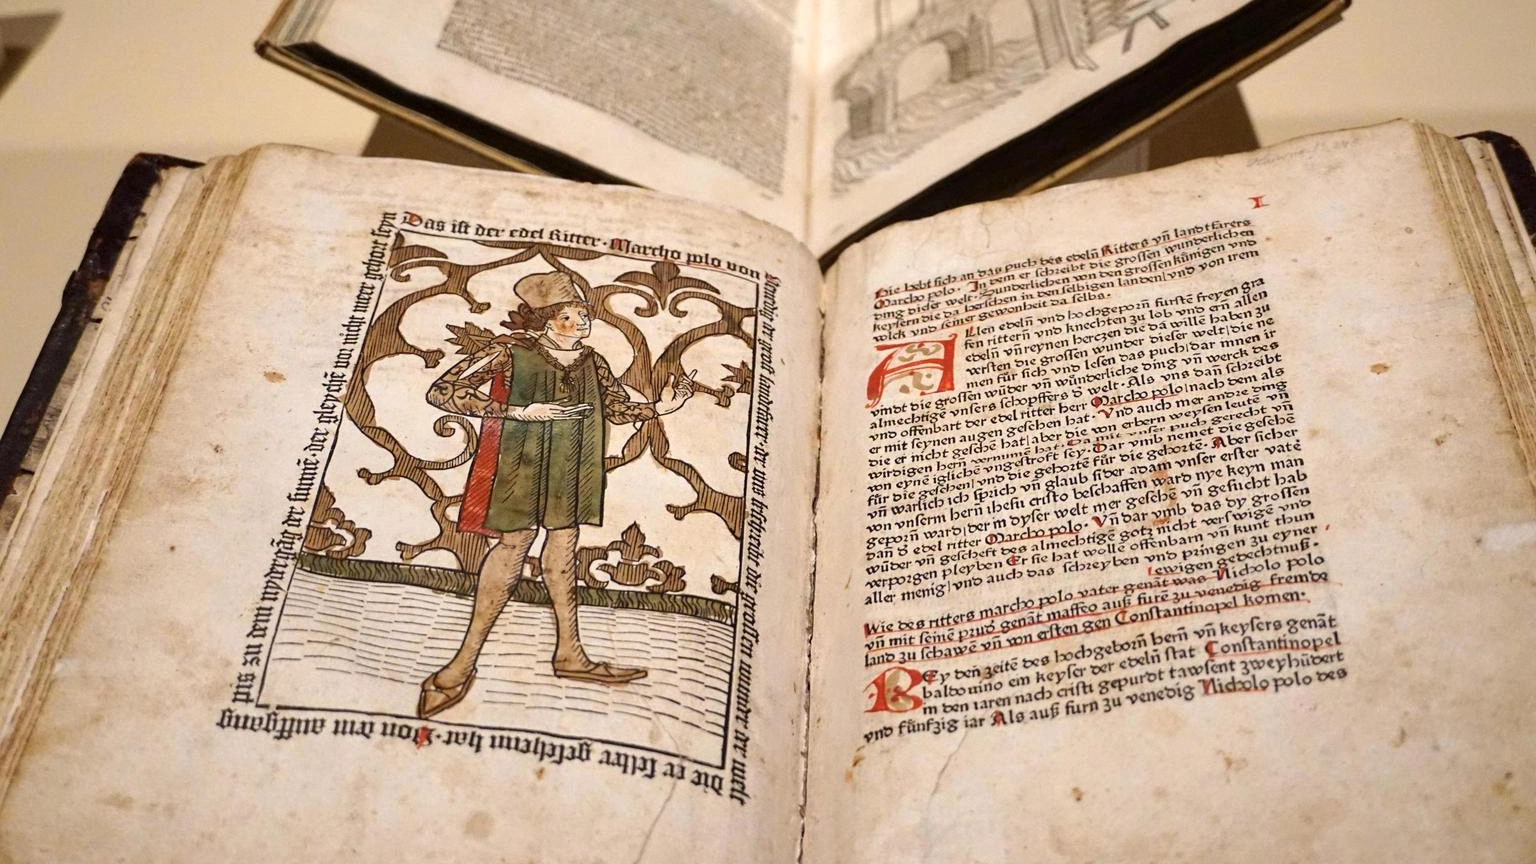 Das ist der edel Ritter. Marcho polo von
Venedig der grost landtfarer. der uns beschreibt die grossen wunder der welt
die er selber gesehenn hat. Von dem auffgang
pis zu dem nydergãg der sunnẽ. der gleychẽ vor nicht meer gehort seyn
I
Hie hebt sich an das puch des edelñ Ritters vñ landtfarers
Marcho polo. In dem er schreibt die grossen wunderlichen
ding dieser welt. Sunderlichen von den grossen künigen vnd
keysern die da herschen in den selbigen landen/vnd von irem
volck vnd seiner gewonheit da selbs.
Allen edelñ vnd hochgeporñ fürstẽ freyen gra
fen rittern vnd knechten zu lob vnd er allen
edelñ vñ reynen herczen die da willẽ haben zu
versten die grossen wunder dieser welt/die ne
men für sich vnd lesen das puch/dar innen ir
vindt die grossen wũder vñ wũnderliche ding vñ werck des
almechtigẽ vnsers schöpffers ð welt. Als vns dañ schreibt
vnd offenbart der edel ritter herr Marcho polo/nach dem als
er mit seynen augen gesehen hat. Vnd auch mer andre ding
die er nicht gesehẽ hat/aber die von erbern weysen leutẽ vñ
wirdigen herñ vernumẽ hat. Da mit vnser puch gerecht vñ
von eynẽ iglichẽ vngestroft sey. Dar vmb nemet die gesehẽ
für die gesehen/vnd die gehortẽ für die gehorte. Aber sicher
vñ warlich ich sprich vñ glaub sider adam vnser erster vatẽ
von vnserm herñ ihesu cristo beschaffen ward nye keyn man
geporñ ward/der in dyser welt mer gesehẽ vñ gesucht hab
dañ ð edel ritter Marcho polo. Vñ dar vmb das dy grossen
wũder vñ gescheft des almechtigẽ gotz nicht verswigẽ vnd
verporgen pleyben Er sie hat wollẽ offenbarn vñ kunt thun
aller menig/vnd auch das schreyben vnd pringen zu eyner
ewigen gedechtnuß.
Wie des ritters marcho polo vater genãt was Nicholo polo
vñ mit seinẽ prud̃ genãt maffeo auß furẽ zu venedig fremde
land zu schawẽ vñ von ersten gen Constantinopel komen.
BEy deñ zeitẽ des hochgeborñ herñ vñ keysers genãt
baldouino ein keyser der edelñ stat Constantinopel
in den iaren nach cristi gepurdt tawsent zweyhũdert
vnd fünfzig iar Als auß furn zu venedig Nicholo polo des